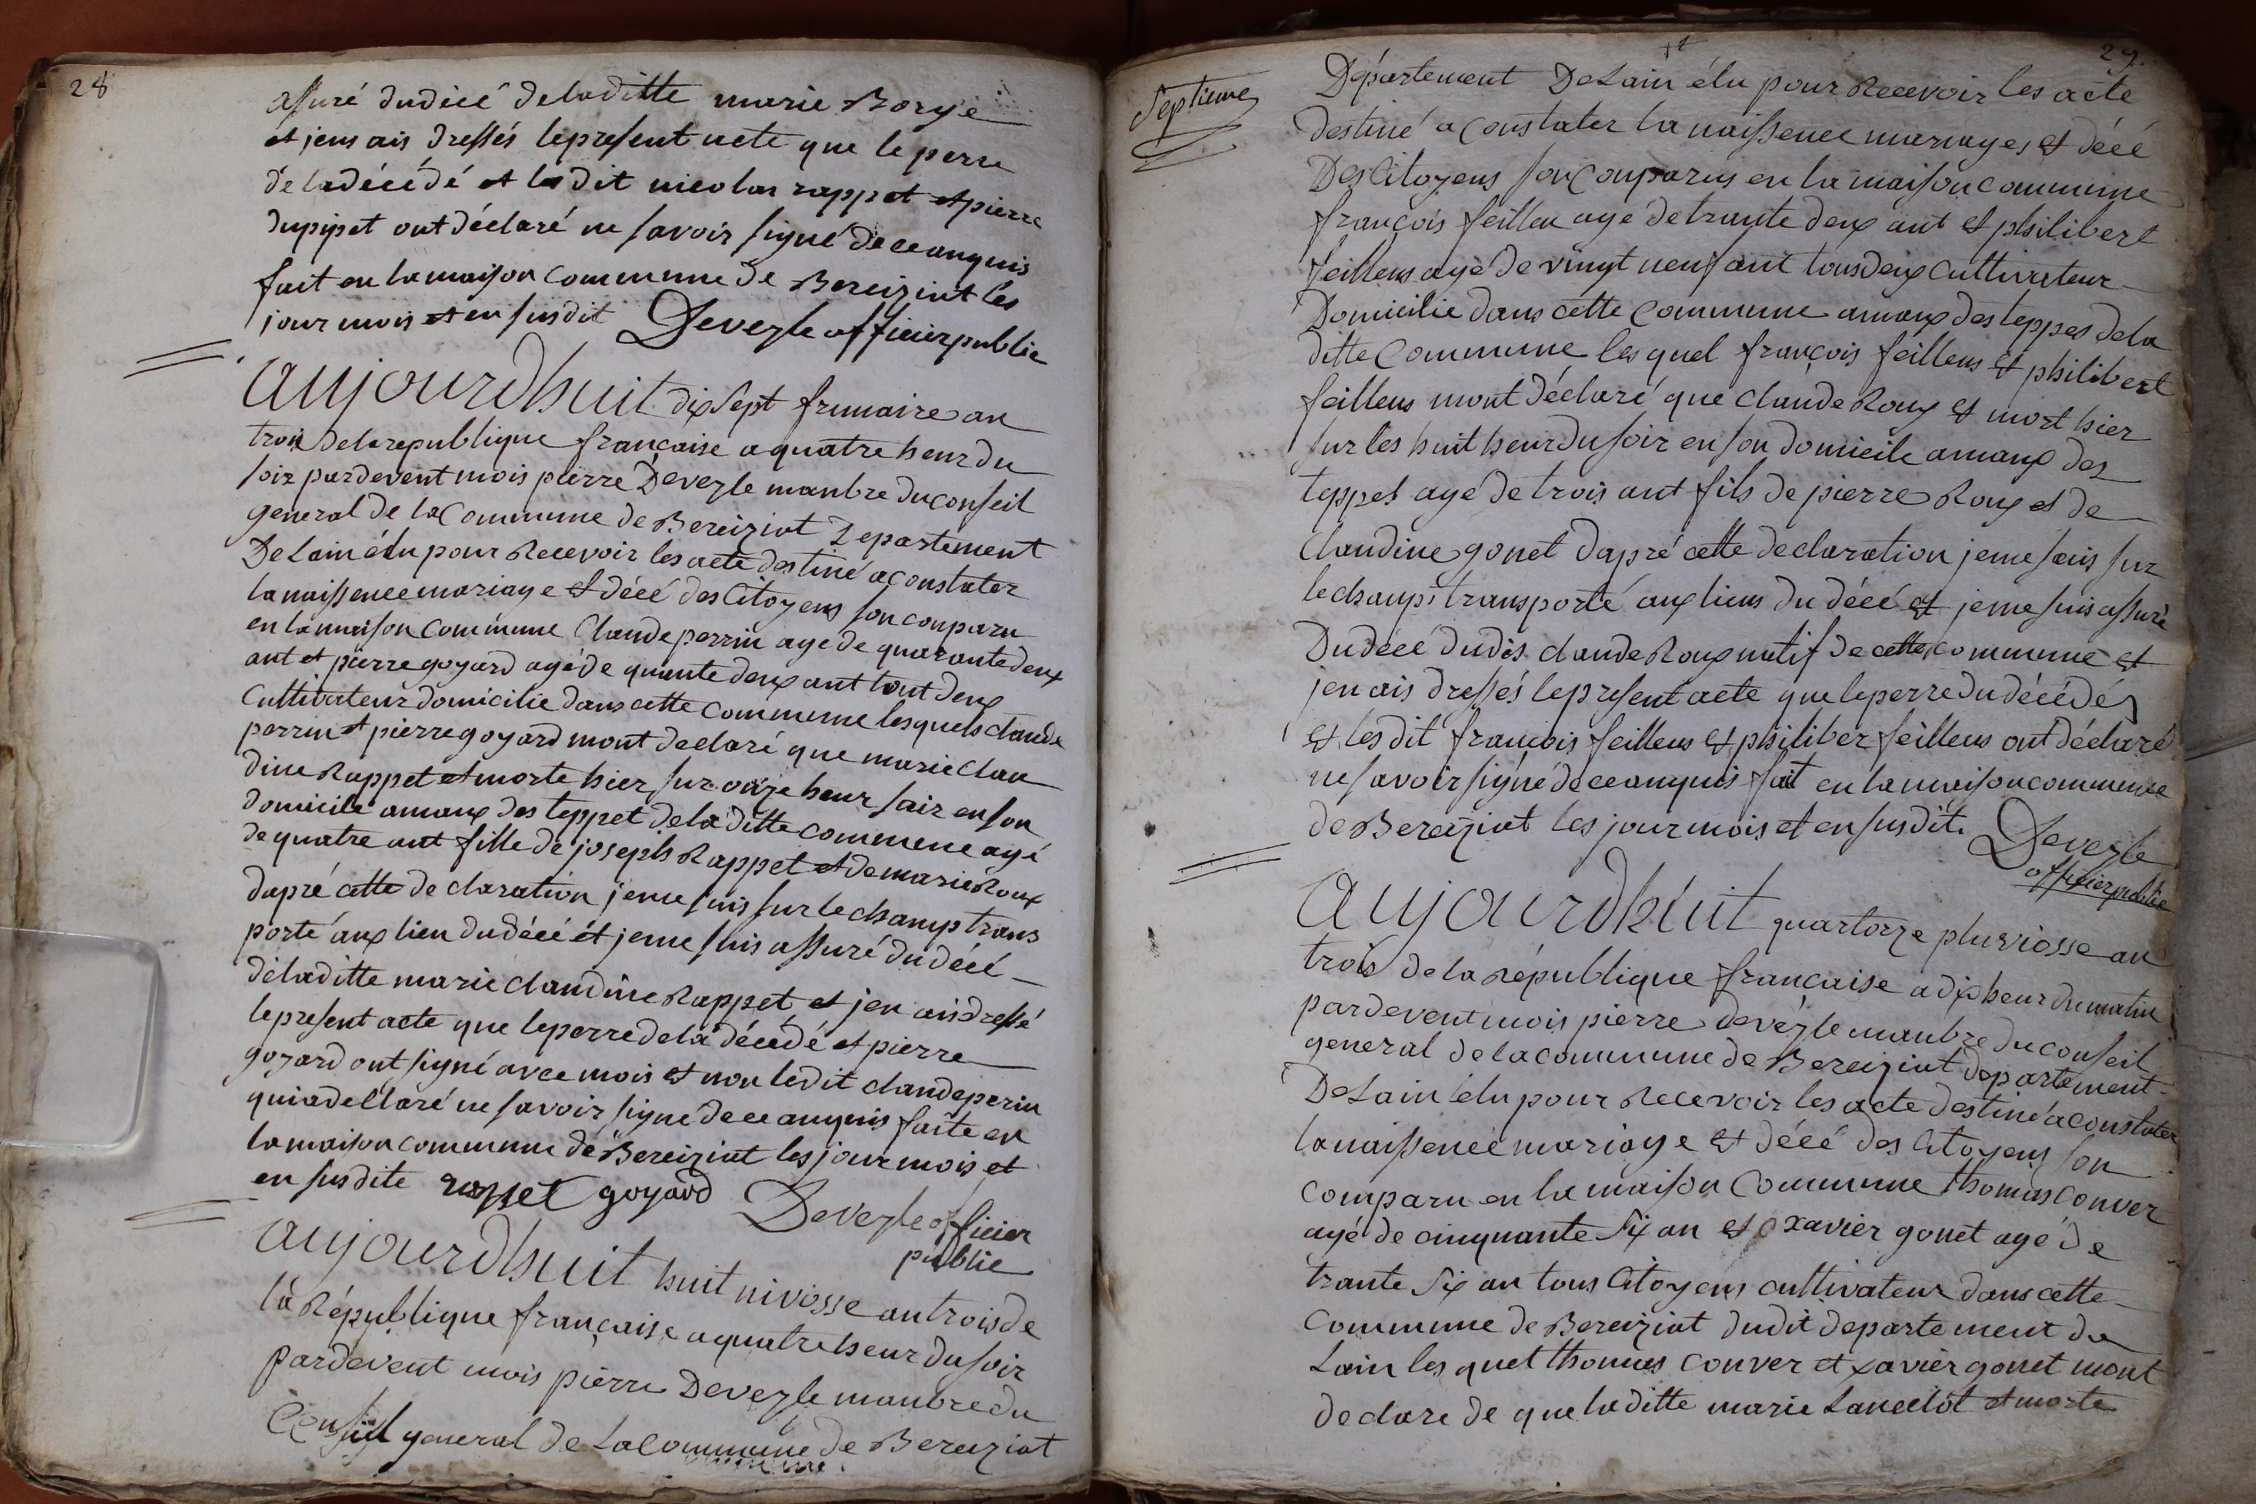 28
assuré dudècé deladitte marie Borge
et jens ais dressés lepresent acte que le perre
de ladécédé et les dit nicolas rappet et pierre
dupipet ont déclaré ne savoir signé dece anquis
fait en la maison commune de Bereiziat les
jour mois et en susdit Deveyle officier public
aujourdhuit dix sept frimaire an
trois dela republique française a quatre heur du
soir pardevent mois pierre Deveyle manbre du conseil
general de la commune de Bereiziat Departement
De Lain élu pour Recevoir les acte destiné a constater
la naissence mariage et décé des Citoyens son conparu
en la maison commune Claude perrin agé de quarante deux
ant et pierre goyard agé de quinte deux ant tout deux
Cultivateur domicilie dans cette commune lesquels claude
perrin et pierre goyard mont declaré que marie clau
dine Rappet et morte hier sur onze heur soir en son
domicile amaux des teppet dela ditte commune agé
de quatre ant fille de joseph Rappet et de marie Roux
dapré cette de claration jeme suis sur le champ trans
porté aux lien dudécé et jeme suis assuré du décé
deladitte marie claudine Rappet et jen ais dressé
lepresent acte que leperre dela décédé et pierre
goyard ont signé avec mois et non ledit claude perin
qui a declaré ne savoir signe dece anquis faite en
la maison commune de Bereiziat les jour mois et
en susdite rappet goyard Deveyle officier
public
aujourdhuit huit nivosse an trois de
la République française a quatre heur du soir
pardevent mois pierre Deveyle manbre du
Conseil general de La commune de Bereiziat
29.
Septieme
Département De Lain élu pour Recevoir les acte
destiné a constater la naissence mariages et décé
Des Citoyens son conparus en la maison commune
françois feillen agé de trante deux ant et philibert
feillens agé de vingt neuf ant tous deux cultivateur
Domicilie dans cette commune amaux des teppes dela
ditte commune lesquel françois feillens et philibert
feillens mont déclaré que claude Roux et mort hier
sur les huit heur du soir en son domicile amaux des
teppes agé de trois ant fils de pierre Roux et de
Claudine gonet dapré cette declaration jeme suis sur
le champs transporté aux liens du décé et jeme suis assuré
Dudécé dudis claude Roux natif de cette commune et
jen ais dressés lepresent acte que leperre du décédé
et les dit francois feillens et philiber feillens ont déclaré
ne savoir signé dece anquis fait en la maison commune
de Bereiziat les jour mois et en susdit. Deveyle
officier public
aujourdhuit quartorze pluviosse an
trois de la République française a dix heur du matin
pardevent mois pierre deveyle manbre du conseil
general de la commune de Bereiziat departement
De Lain élu pour Recevoir les acte destiné a constater
la naissence mariage et décé des Citoyens son
comparu en la maison commune thomas conver
agé de cinquante six an et xavier gonet agé de
trante six an tous Citoyens cultivateur dans cette
commune de Bereiziat dudit departement de
Lain les quel thomas conver et xavier gonet mont
declare de que laditte marie Lancelot et morte